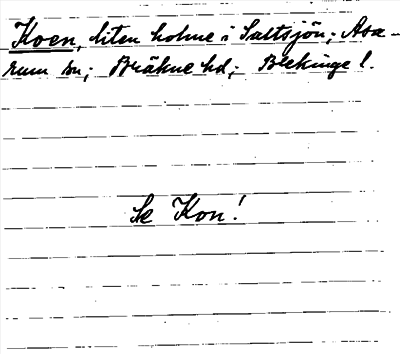 Koen, liten holme i Saltsjön; Asa-
rum sn; Bräkne hd; Blekinge l.
Se Kon!